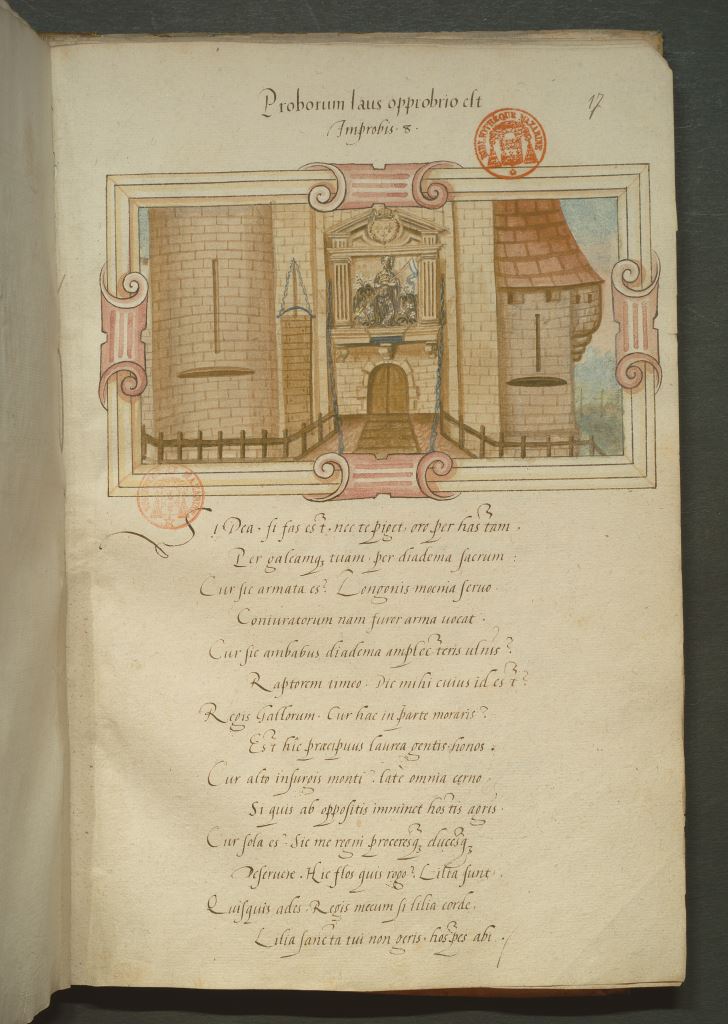 Proborum laus opprobrio est
Improbis · 8 ·
17
BIBLIOTHÈQUE MAZARINE
Si Dea · si fas est · nec te piget · oro per hastam ·
Per galeamq; tuam · per diadema sacrum :
Cur sic armata es? Longonis moenia servo ·
Coniuratorum nam furor arma vocat ·
Cur sic ambabus diadema amplecteris ulnis?
Raptorem timeo · Dic mihi cuius id est?
Regis Gallorum · Cur hac in parte moraris?
Est hic praecipuus laurea gentis honos ·
Cur alto insurgis monti? late omnia cerno ·
Si quis ab oppositis imminet hostis agris ·
Cur sola es? Sic me regni proceresq; ducesq;
Deseruere · Hic flos quis rogo? Lilia sunt ·
Quisquis ades · Regis mecum si lilia corde ·
Lilia sancta tui non geris · hospes abi ·